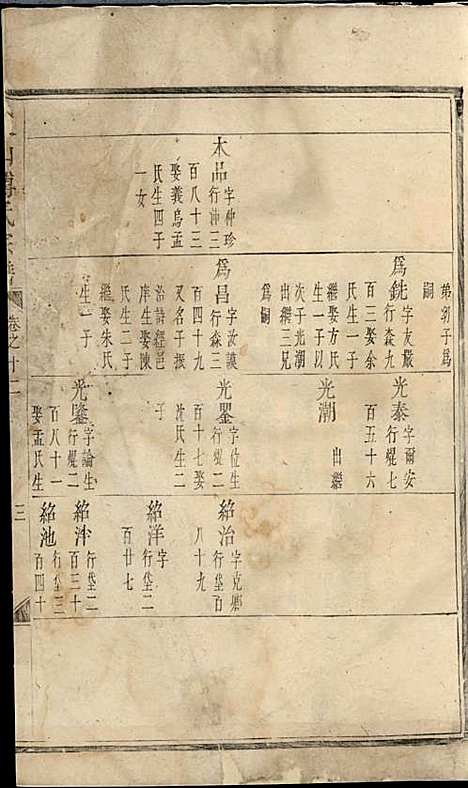 木品
字仲珍
行沖三
百八十三
娶義烏孟
氏生四子
一女
弟釗子爲
嗣
爲銑
字友嚴
行森九
百二娶余
氏生一子
繼娶方氏
生一子以
次子光潮
出繼三兄
爲嗣
爲昌
字汝謨
行森三
百四十九
又名子振
治詩經邑
庠生娶陳
氏生二子
繼娶朱氏
生一子
光泰
字爾安
行燿七
百五十六
光潮
出繼
光瞾
字位生
行燿二
百十七娶
沈氏生二
子
光鑒
字諭生
行燿二
百八十一
娶孟氏生
紹治
字克卿
行垡百
八十九
紹洋
字
行垡二
百廿七
紹泮
行垡二
百三十
紹池
行垡三
百四十
卷之十二
三